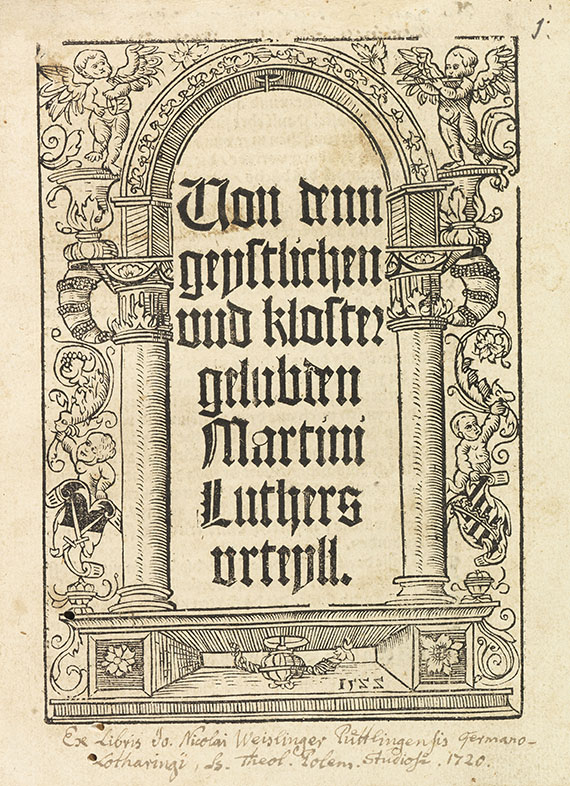 1.
Von denn
geystlichen
vnd kloster
gelubden
Martini
Luthers
vrteyll.
1522
Ex Libris Jo. Nicolai Weislinger Püttlingensis Germano-
Lotharingi, Ss. Theol. Polem. Studiosi. 1720.